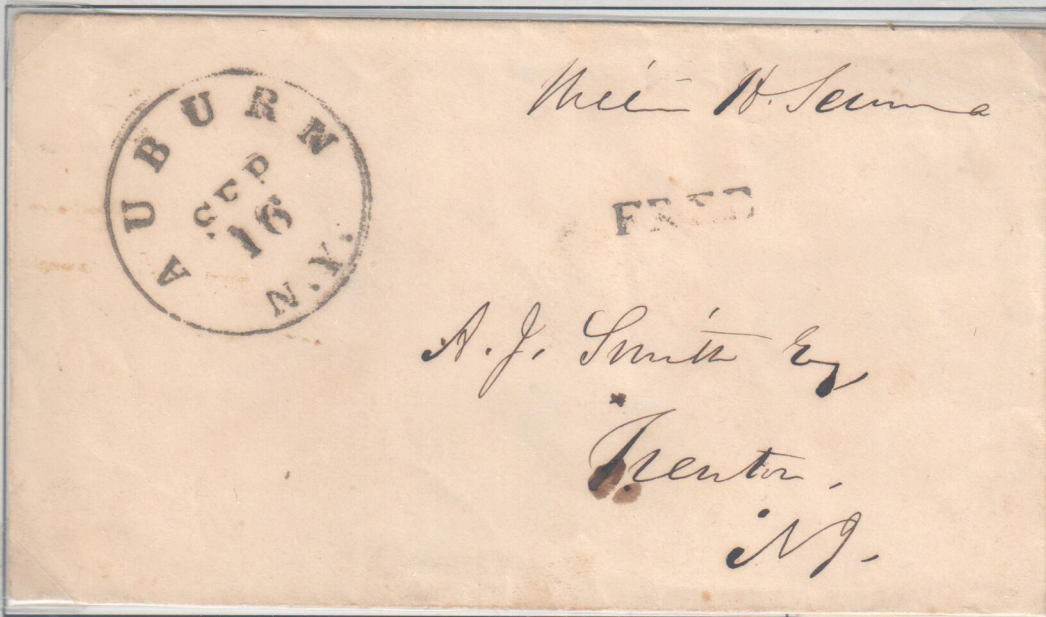 AUBURN N.Y.
SEP
16
William H. Seward
FREE
A. J. Smith Esq
Trenton,
N J.